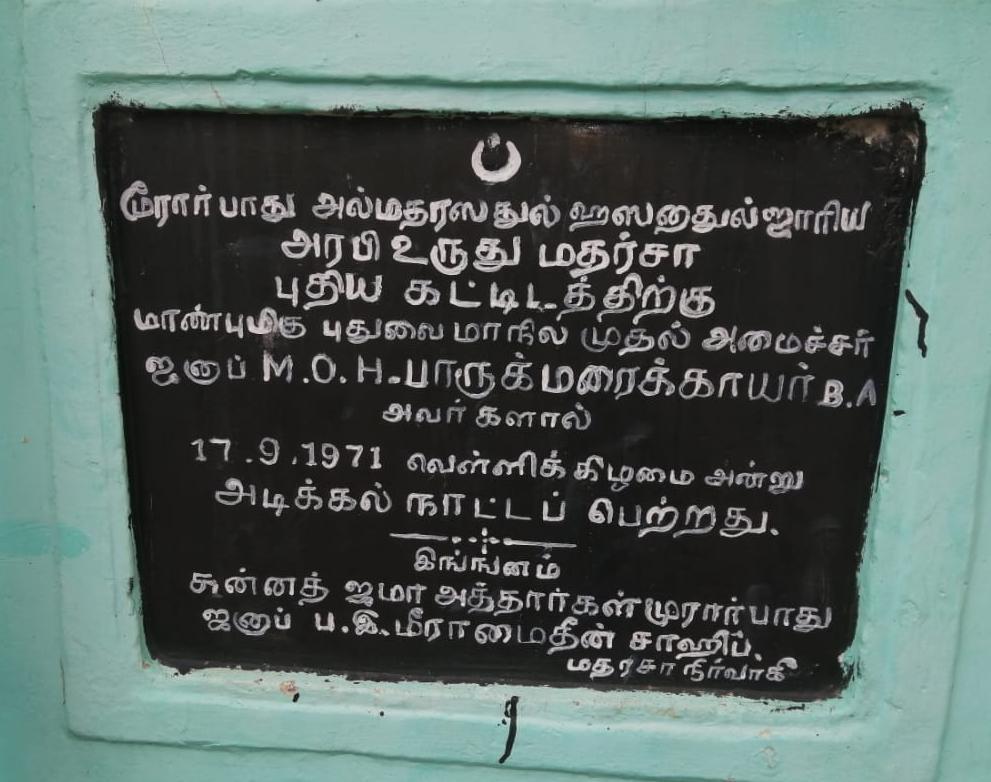 மூரார்பாது அல்மதரஸதுல் ஹஸனதுல்ஜாரிய
அரபி உருது மதர்சா
புதிய கட்டிடத்திற்கு
மாண்புமிகு புதுவை மாநில முதல் அமைச்சர்
ஜனாப் M.O.H.பாரூக் மரைக்காயர் B.A
அவர்களால்
17.9.1971 வெள்ளிக்கிழமை அன்று
அடிக்கல் நாட்டப் பெற்றது.
இங்ஙனம்
சுன்னத் ஜமாஅத்தார்கள் முரார்பாது
ஜனாப் ப.இ.மீராமைதீன் சாஹிப்.
மதரசா நிர்வாகி